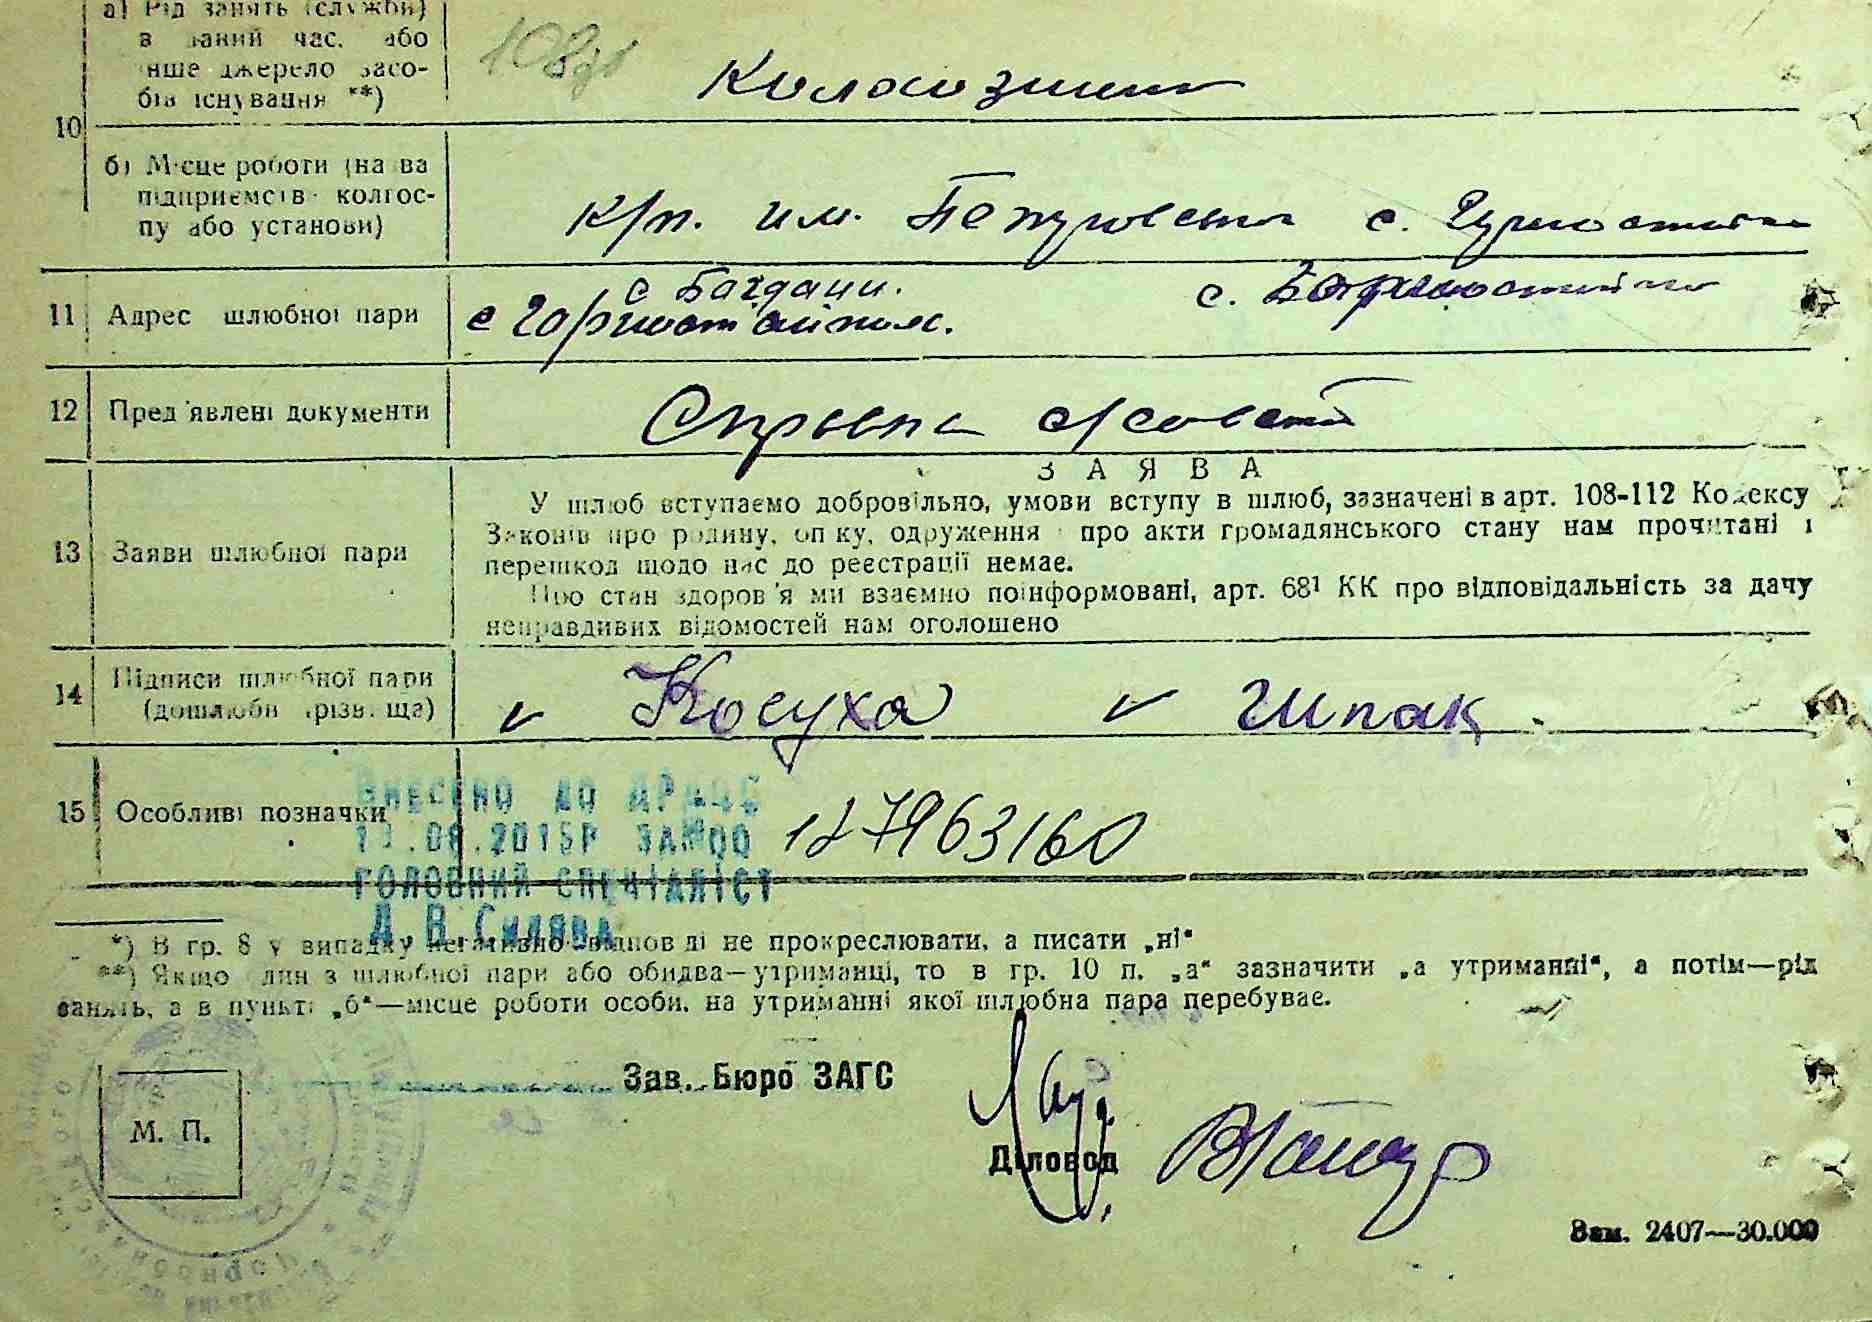 а) Рід занять (служби)
в даний час, або
інше джерело засо-
бів існування **)
10
б) Місце роботи (назва
підприємств, колгос-
пу або установи)
к/г. им. Петровського с.
11 Адрес шлюбної пари
с Богдани.
с Горностайпіль.
с. Горностайпіль
12 Пред'явлені документи
Справка с/совета
ЗАЯВА
13 Заяви шлюбної пари
У шлюб вступаємо добровільно, умови вступу в шлюб, зазначені в арт. 108-112 Кодексу
Законів про родину, опіку, одруження і про акти громадянського стану нам прочитані і
перешкод щодо нас до реєстрації немає.
Про стан здоров'я ми взаємно поінформовані, арт. 68¹ КК про відповідальність за дачу
неправдивих відомостей нам оголошено
14 Підписи шлюбної пари
(дошлюбні прізвища)
Косуха Шпак
15 Особливі позначки
ВНЕСЕНО ДО ДРАЦС
.08.2015Р ЗА№00 127963160
ГОЛОВНИЙ СПЕЦІАЛІСТ
*) В гр. 8 у випадку негативної відповіді не прокреслювати, а писати „ні"
**) Якщо один з шлюбної пари або обидва—утриманці, то в гр. 10 п. „а" зазначити „а утриманні", а потім—рід
занять, а в пункті „б"—місце роботи особи, на утриманні якої шлюбна пара перебуває.
Зав. Бюро ЗАГС
М. П.
Діловод
Зам. 2407—30.000